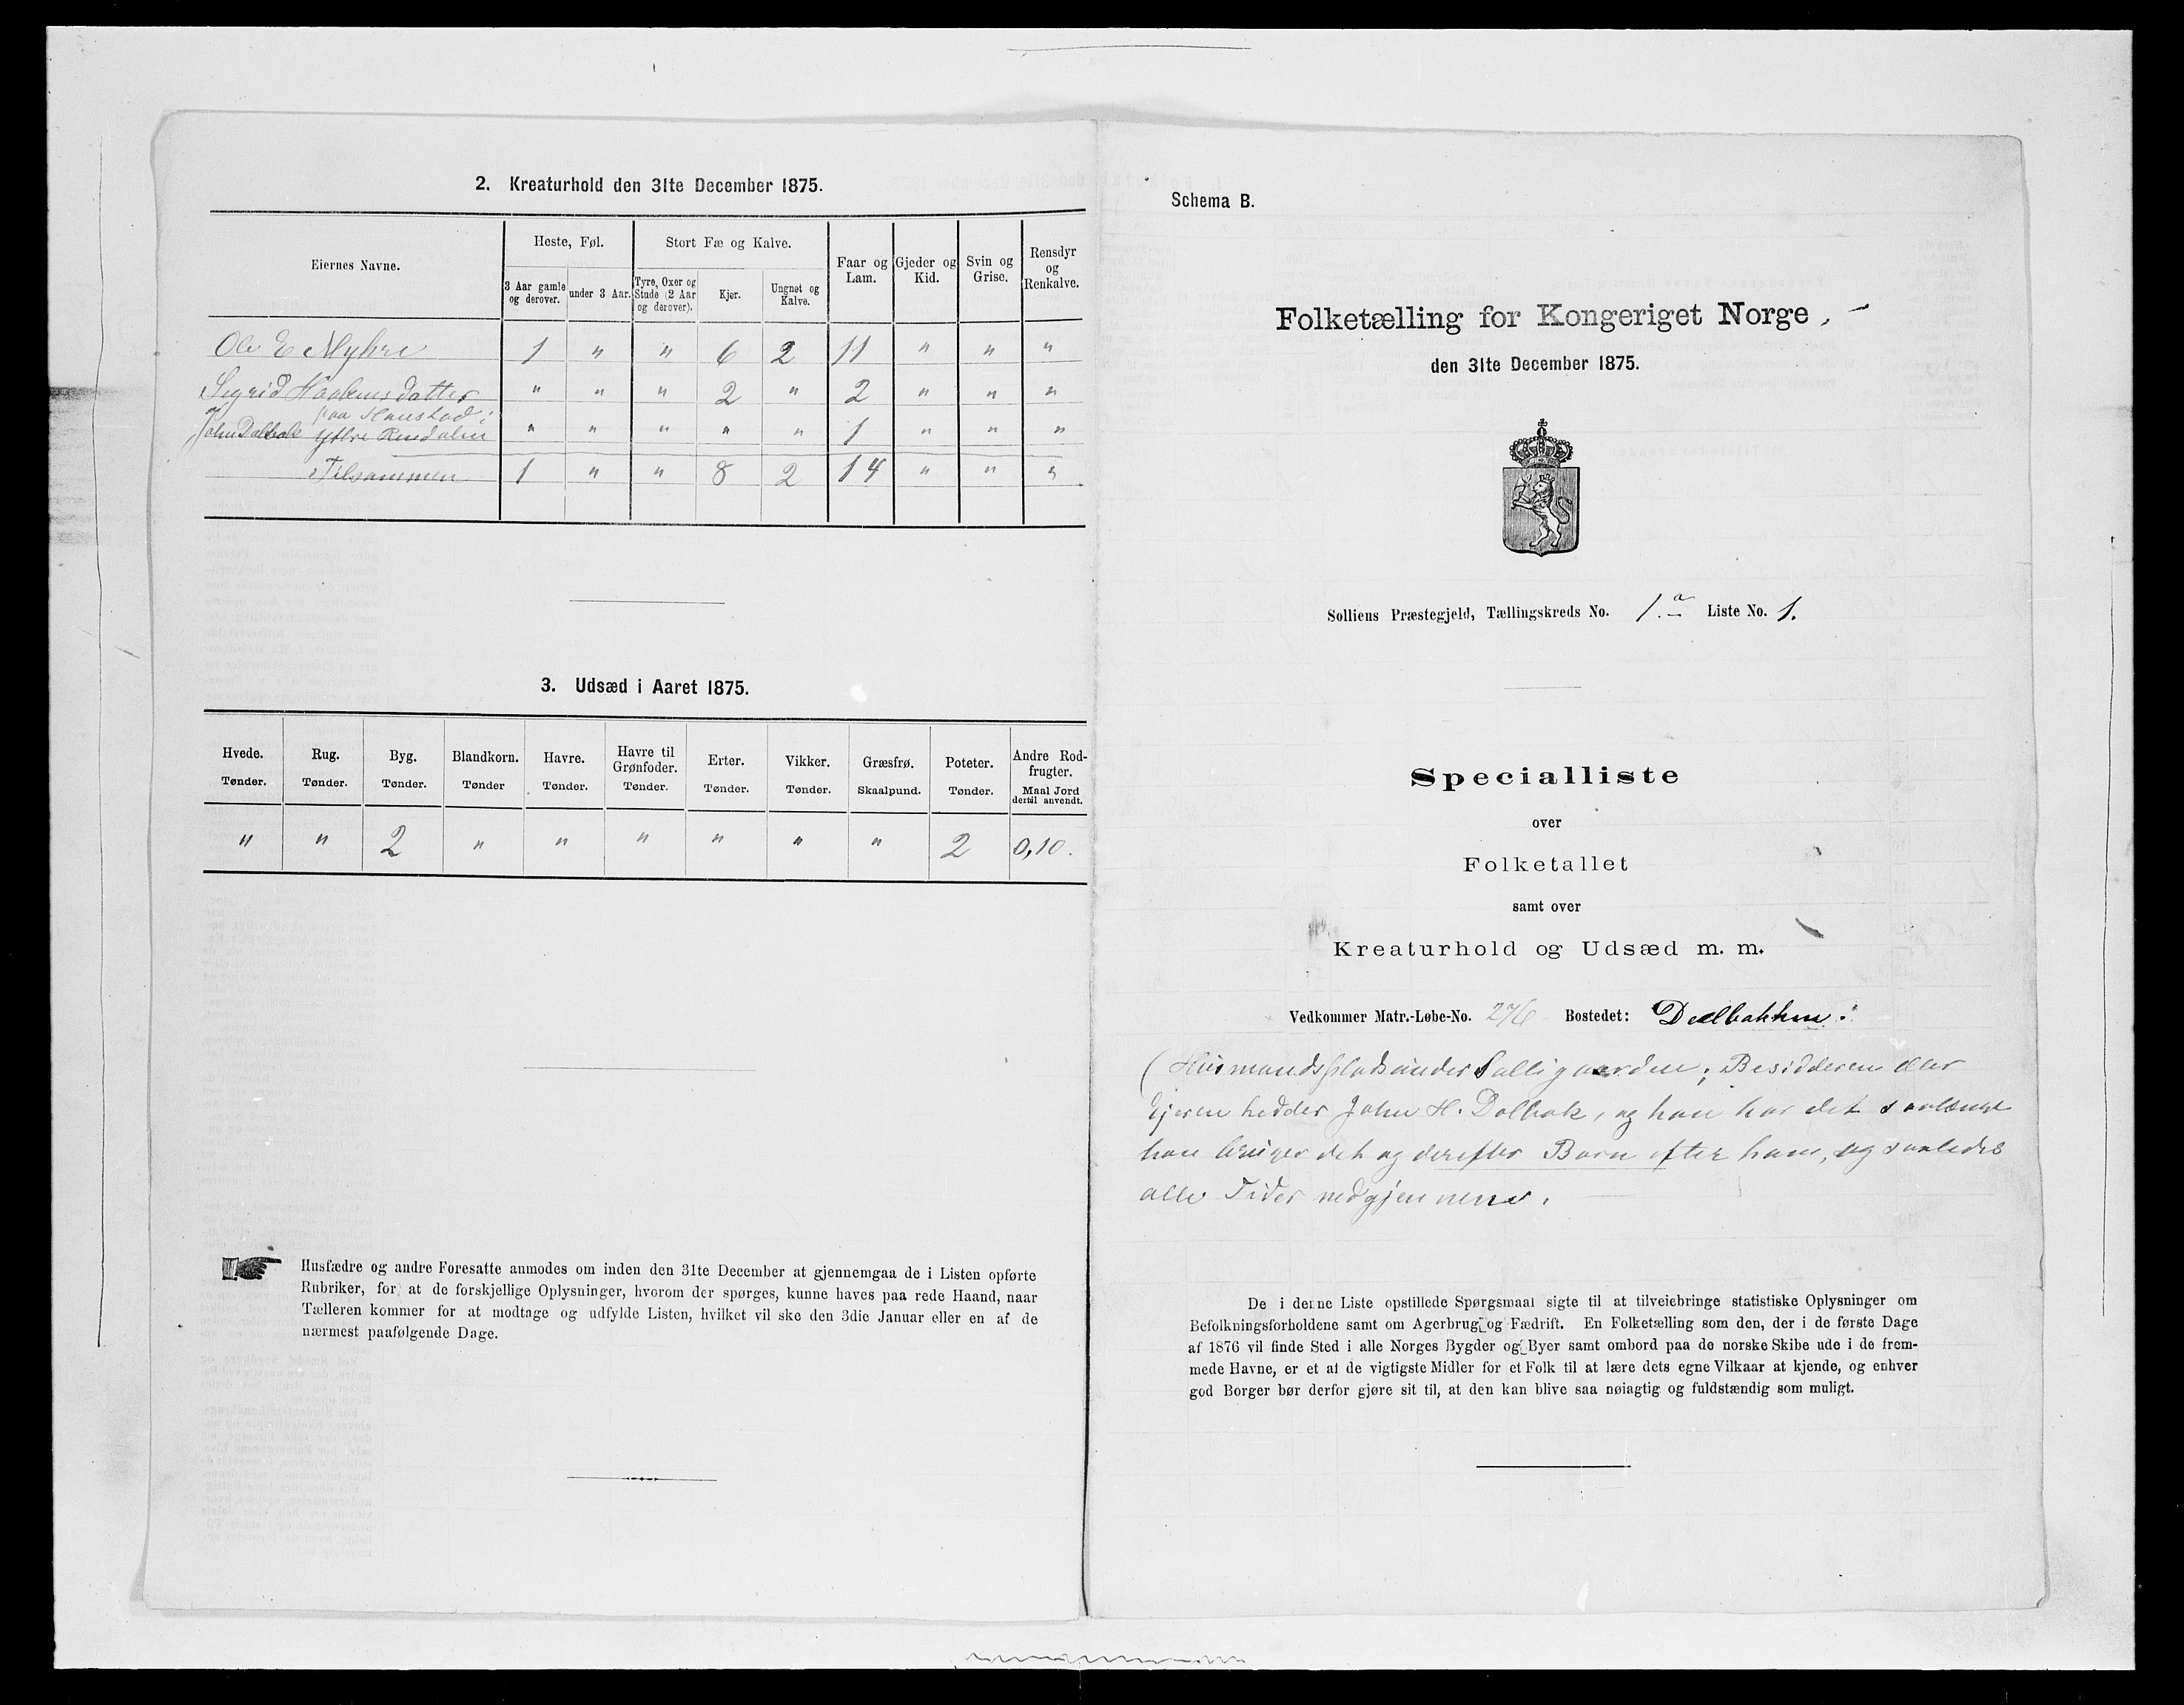 2. Kreaturhold den 31te December 1875.
Eiernes Navne.
Heste, Føl.
Stort Fæ og Kalve.
Faar og Lam.
Gjeder og Kid.
Svin og Grise.
Rensdyr og Renkalve.
3 Aar gamle og derover.
under 3 Aar.
Tyre, Oxer og Stude (2 Aar og derover).
Kjør.
Ungnøt og Kalve.
Ole E Myhre 1 " " 6 2 11 " " "
Sigrid Haakensdatter " " " 2 " 2 " " "
paa
John Dalbak Ytre " " " " " 1 " " "
Tilsammen 1 " " 8 2 14 " " "
3. Udsæd i Aaret 1875.
Hvede. Tønder.
Rug. Tønder.
Byg. Tønder.
Blandkorn. Tønder
Havre. Tønder.
Havre til Grønfoder. Tønder.
Erter. Tønder.
Vikker. Tønder.
Græsfrø. Skaalpund.
Poteter. Tønder.
Andre Rodfrugter. Maal Jord dertil anvendt.
" " 2 " " " " " " 2 0,10.
Husfædre og andre Foresatte anmodes om inden den 31te December at gjennemgaa de i Listen opførte
Rubriker, for at de forskjellige Oplysninger, hvorom der spørges, kunne haves paa rede Haand, naar
Tælleren kommer for at modtage og udfylde Listen, hvilket vil ske den 3die Januar eller en af de
nærmest paafølgende Dage.
Schema B.
Folketælling for Kongeriget Norge
den 31te December 1875.
Solliens Præstegjeld, Tællingskreds No. 1.a Liste No. 1.
Specialliste
over
Folketallet
samt over
Kreaturhold og Udsæd m. m.
Vedkommer Matr.-Løbe-No. 276 Bostedet: Dælbakken.
(Husmandsplads under Solligaarden; Besidderen eller
Ejeren hedder John H. Dolbak, og han har det saalænge
han bruger det og derefter Børn efter ham, og saaledes
alle Tider nedgjennem.
De i denne Liste opstillede Spørgsmaal sigte til at tilveiebringe statistiske Oplysninger om
Befolkningsforholdene samt om Agerbrug og Fædrift. En Folketælling som den, der i de første Dage
af 1876 vil finde Sted i alle Norges Bygder og Byer samt ombord paa de norske Skibe ude i de frem-
mede Havne, er et af de vigtigste Midler for et Folk til at lære dets egne Vilkaar at kjende, og enhver
god Borger bør derfor gjøre sit til, at den kan blive saa nøiagtig og fuldstændig som muligt.